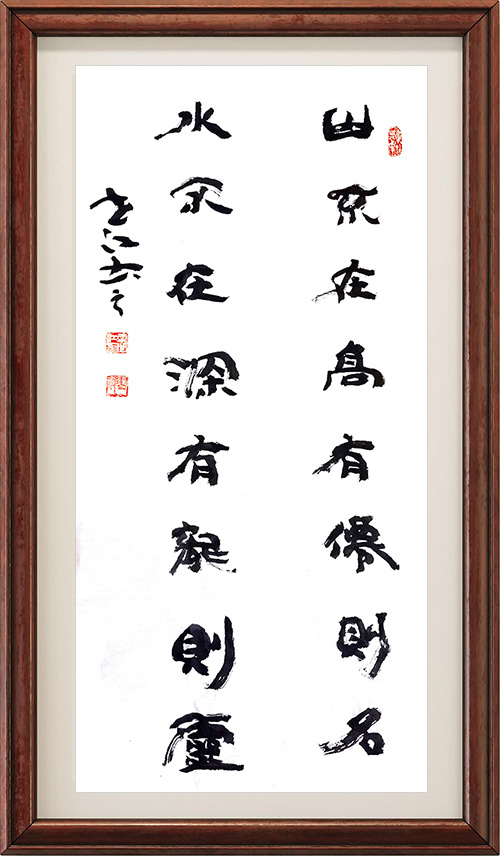 山不在高有僊則名
水不在深有龍則靈